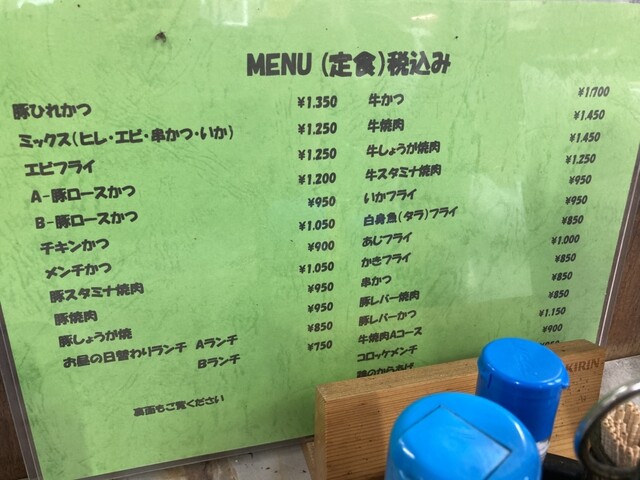 MENU (定食)税込み
豚ひれかつ ¥1.350
ミックス(ヒレ・エビ・串かつ・いか) ¥1.250
エビフライ ¥1.250
A-豚ロースかつ ¥1.200
B-豚ロースかつ ¥950
チキンかつ ¥1.050
メンチかつ ¥900
豚スタミナ焼肉 ¥1.050
豚焼肉 ¥950
豚しょうが焼 ¥950
お昼の日替わりランチ Aランチ ¥850
Bランチ ¥750
裏面もご覧ください
牛かつ ¥1.700
牛焼肉 ¥1.450
牛しょうが焼肉 ¥1.450
牛スタミナ焼肉 ¥1.250
いかフライ ¥950
白身魚(タラ)フライ ¥950
あじフライ ¥850
かきフライ ¥1.000
串かつ ¥850
豚レバー焼肉 ¥850
豚レバーかつ ¥850
牛焼肉Aコース ¥1.150
コロッケメンチ ¥900
鶏のからあげ
KIRIN